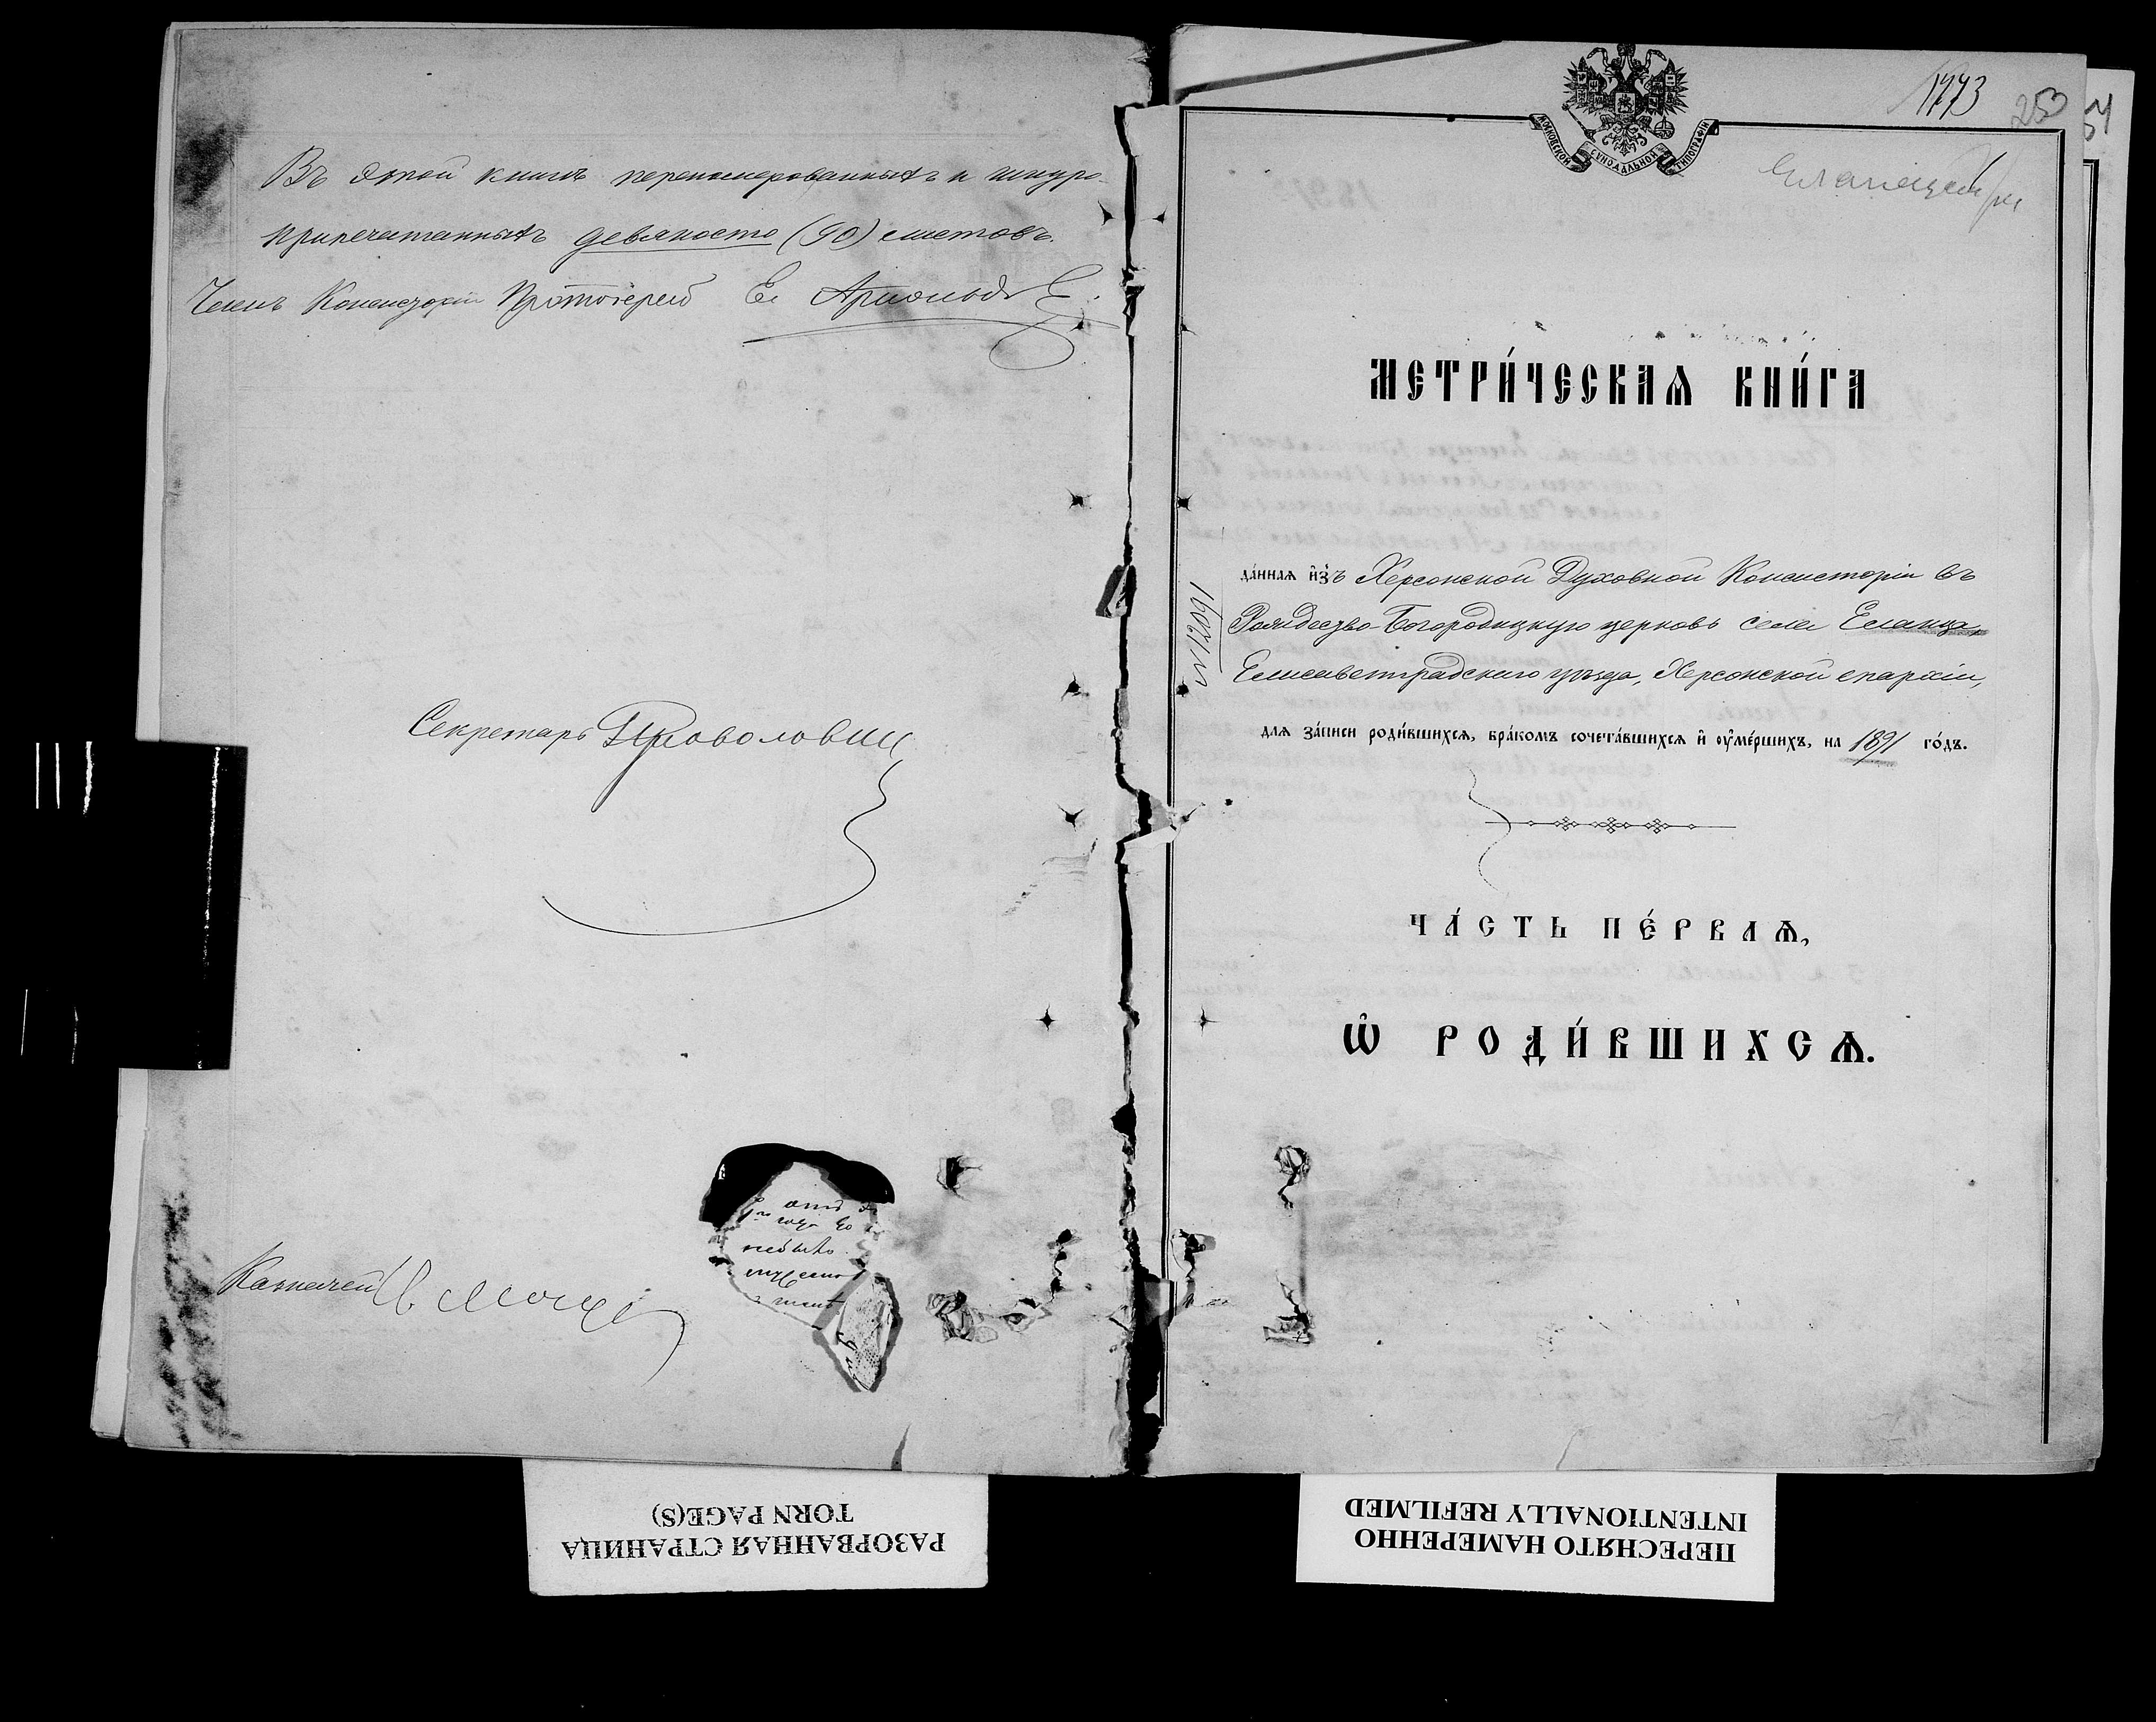 Въ этой книгѣ перенумерованныхъ и шнуро-
припечатанныхъ девяносто (90) листовъ.
Членъ Консисторіи Протоіерей
Секретарь
Казначей
1773
253
МОСКОВСКОЙ СѴНОДАЛЬНОЙ ТИПОГРАФІИ
МЕТРИ́ЧЕСКАѦ КНИ́ГА
да́ннаѧ и҆зъ Херсонской Духовной Консисторіи въ
Рождество-Богородицкую церковь села Еланца,
Елисаветградскаго уѣзда, Херсонской епархіи,
для за́писи роди́вшихсѧ, бра́комъ сочета́вшихсѧ и҆ ᲂу҆ме́ршихъ, на 1891 го́дъ.
№ 12091
ЧА́СТЬ ПЕ́РВАѦ,
Ѡ҆ РОДИ́ВШИХСѦ.
РАЗОРВАННАЯ СТРАНИЦА
TORN PAGE(S)
ПЕРЕСНЯТО НАМЕРЕННО
INTENTIONALLY REFILMED